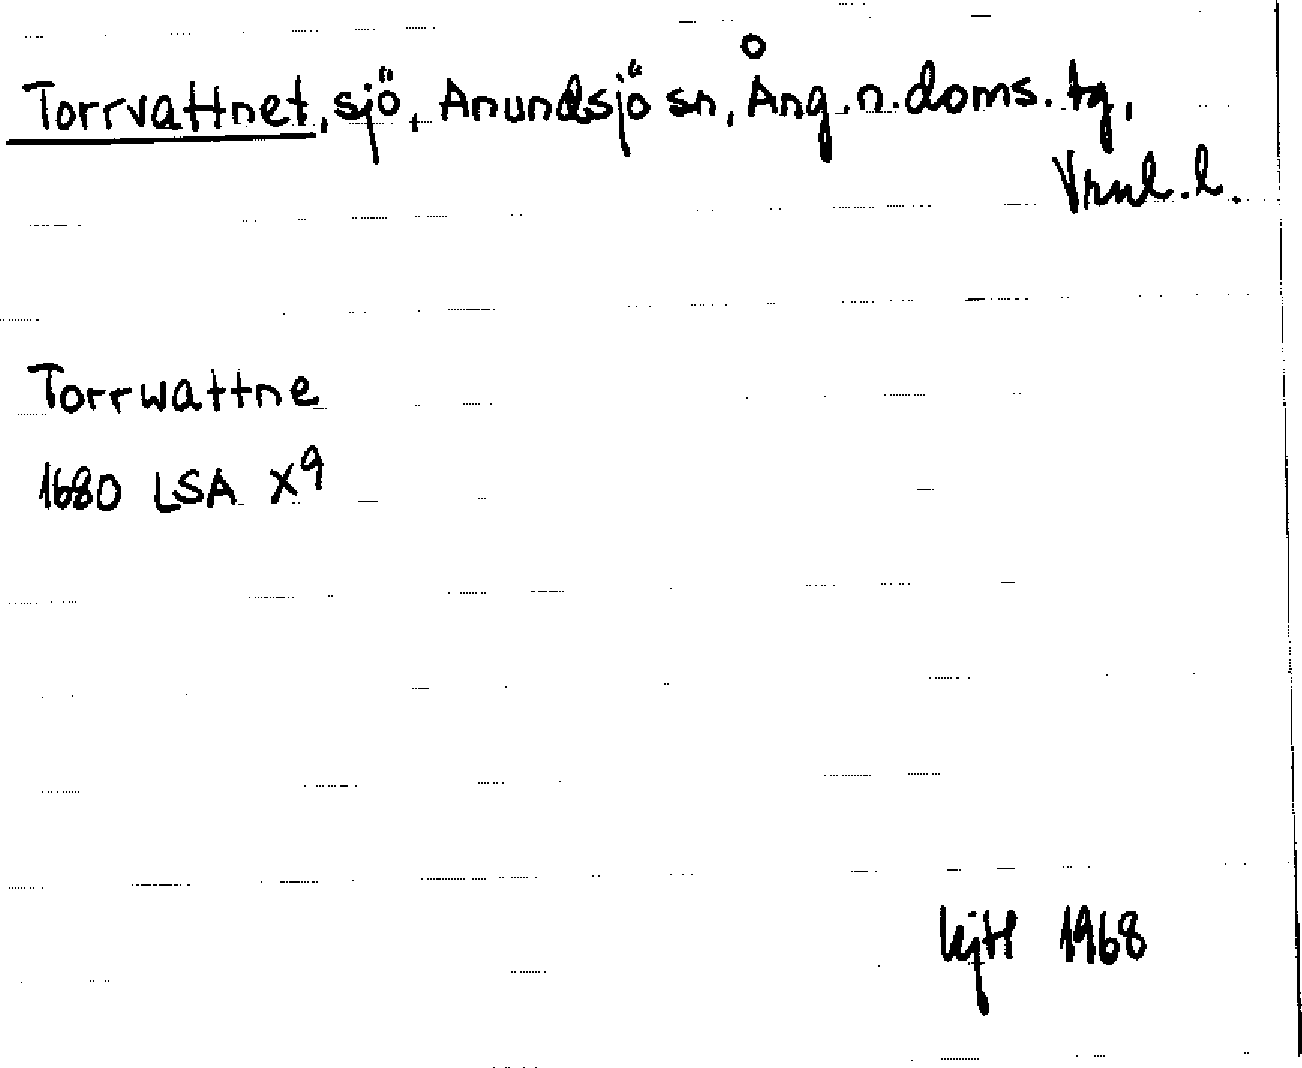 Torrvattnet, sjö, Anundsjö sn, Ång. n. doms. tg,
Vrnl. l.
Torrwattne
1680 LSA X9
KjH 1968